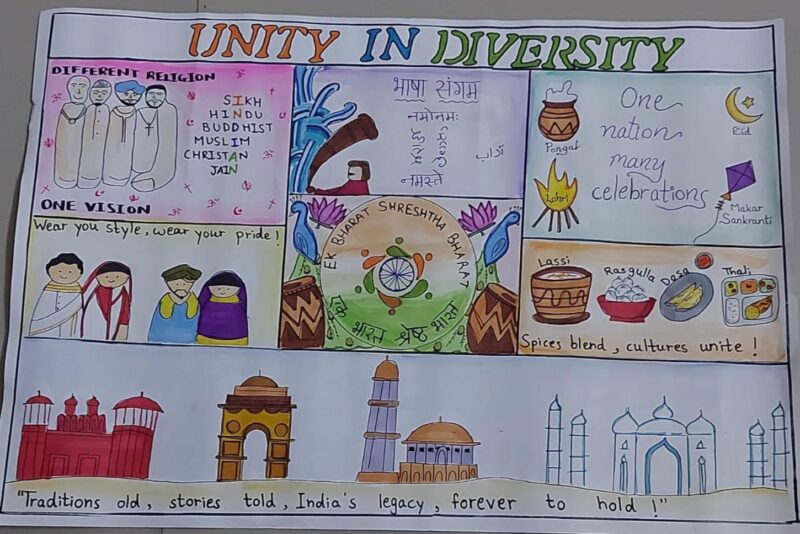 UNITY IN DIVERSITY
DIFFERENT RELIGION
SIKH
HINDU
BUDDHIST
MUSLIM
CHRISTAN
JAIN
ONE VISION
भाषा संगम
नमोनमः
آداب
नमस्ते
One
nation
many
celebrations
Pongal
Eid
Lohri
Makar
Sankranti
Wear you style, wear your pride!
EK BHARAT SHRESHTHA BHARAT
एक भारत श्रेष्ठ भारत
Lassi
Rasgulla
Dosa
Thali
Spices blend, cultures unite!
"Traditions old, stories told, India's legacy, forever to hold!"